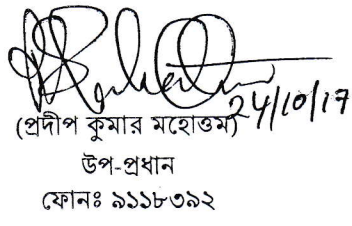 24/10/17
(প্রদীপ কুমার মহোত্তম)
উপ-প্রধান
ফোনঃ ৯১১৮৩৯২